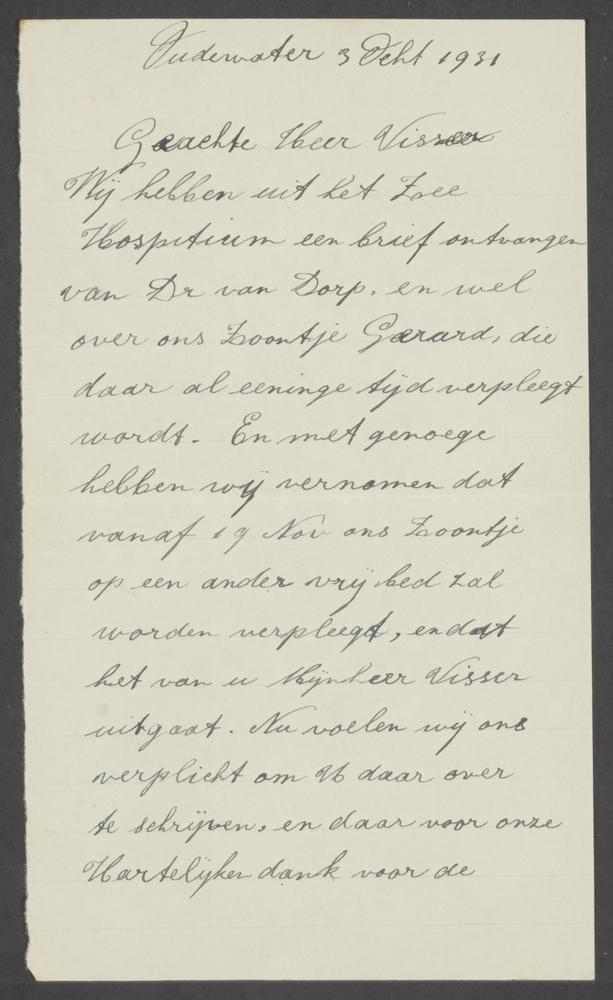 Oudewater 3 Decbt 1931
Geachte Heer Visser
Wij hebben uit het Zee
Hospitium een brief ontvangen
van Dr van Dorp. en wel
over ons Zoontje Gerard, die
daar al eeninge tijd verpleegt
wordt. En met genoege
hebben wij vernomen dat
vanaf 19 Nov ons Zoontje
op een ander vrij bed zal
worden verpleegt, en dat
het van u Mijnheer Visser
uitgaat. Nu voelen wij ons
verplicht om U daar over
te schrijven. en daar voor onze
Hartelijken dank voor de